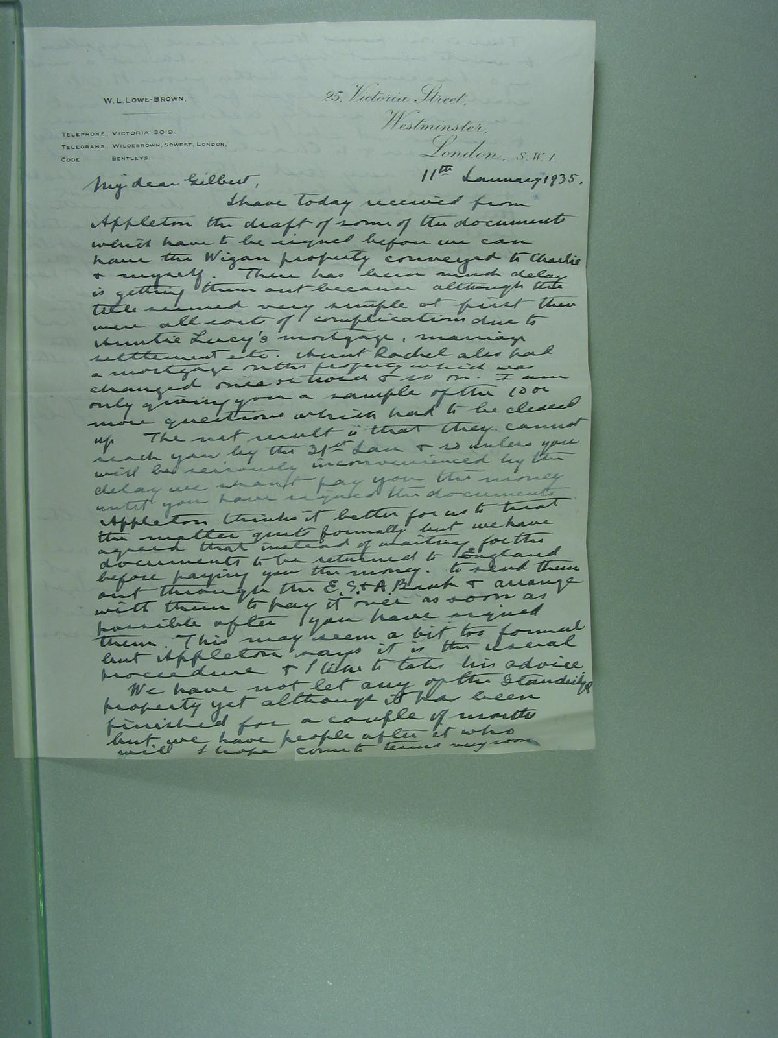 W. L. LOWE-BROWN.
25, Victoria Street,
Westminster,
London, S.W.1
TELEPHONE, VICTORIA 9019.
TELEGRAMS, WILOEBROWN, SOWEST, LONDON.
CODE BENTLEYS
11th January 1935.
My dear Gilbert,
I have today received from
Appleton the draft of some of the documents
which have to be signed before we can
have the Wigan property conveyed to Charlie
& myself. There has been much delay
in getting them out because although the
title seemed very simple at first there
were all sorts of complications due to
Auntie Lucy's mortgage, marriage
settlement etc. Aunt Rachel also had
a mortgage on the property which was
changed once or twice & so on. I am
only giving you a sample of the 100 or
more questions which had to be cleared
up. The net result is that they cannot
reach you by the 31st Jan & so unless you
will be seriously inconvenienced by the
delay we shan't pay you the money
until you have signed the documents
Appleton thinks it better for us to treat
the matter quite formally but we have
agreed that instead of waiting for the
documents to be returned to England
before paying you the money. to send them
out through the E. S. & A. Bank & arrange
with them to pay it over as soon as
possible after you have signed
them. This may seem a bit too formal
but Appleton says it is the usual
procedure & I like to take his advice
We have not let any of the
property yet although it has been
finished for a couple of months
but we have people after it who
will I hope come to terms very soon